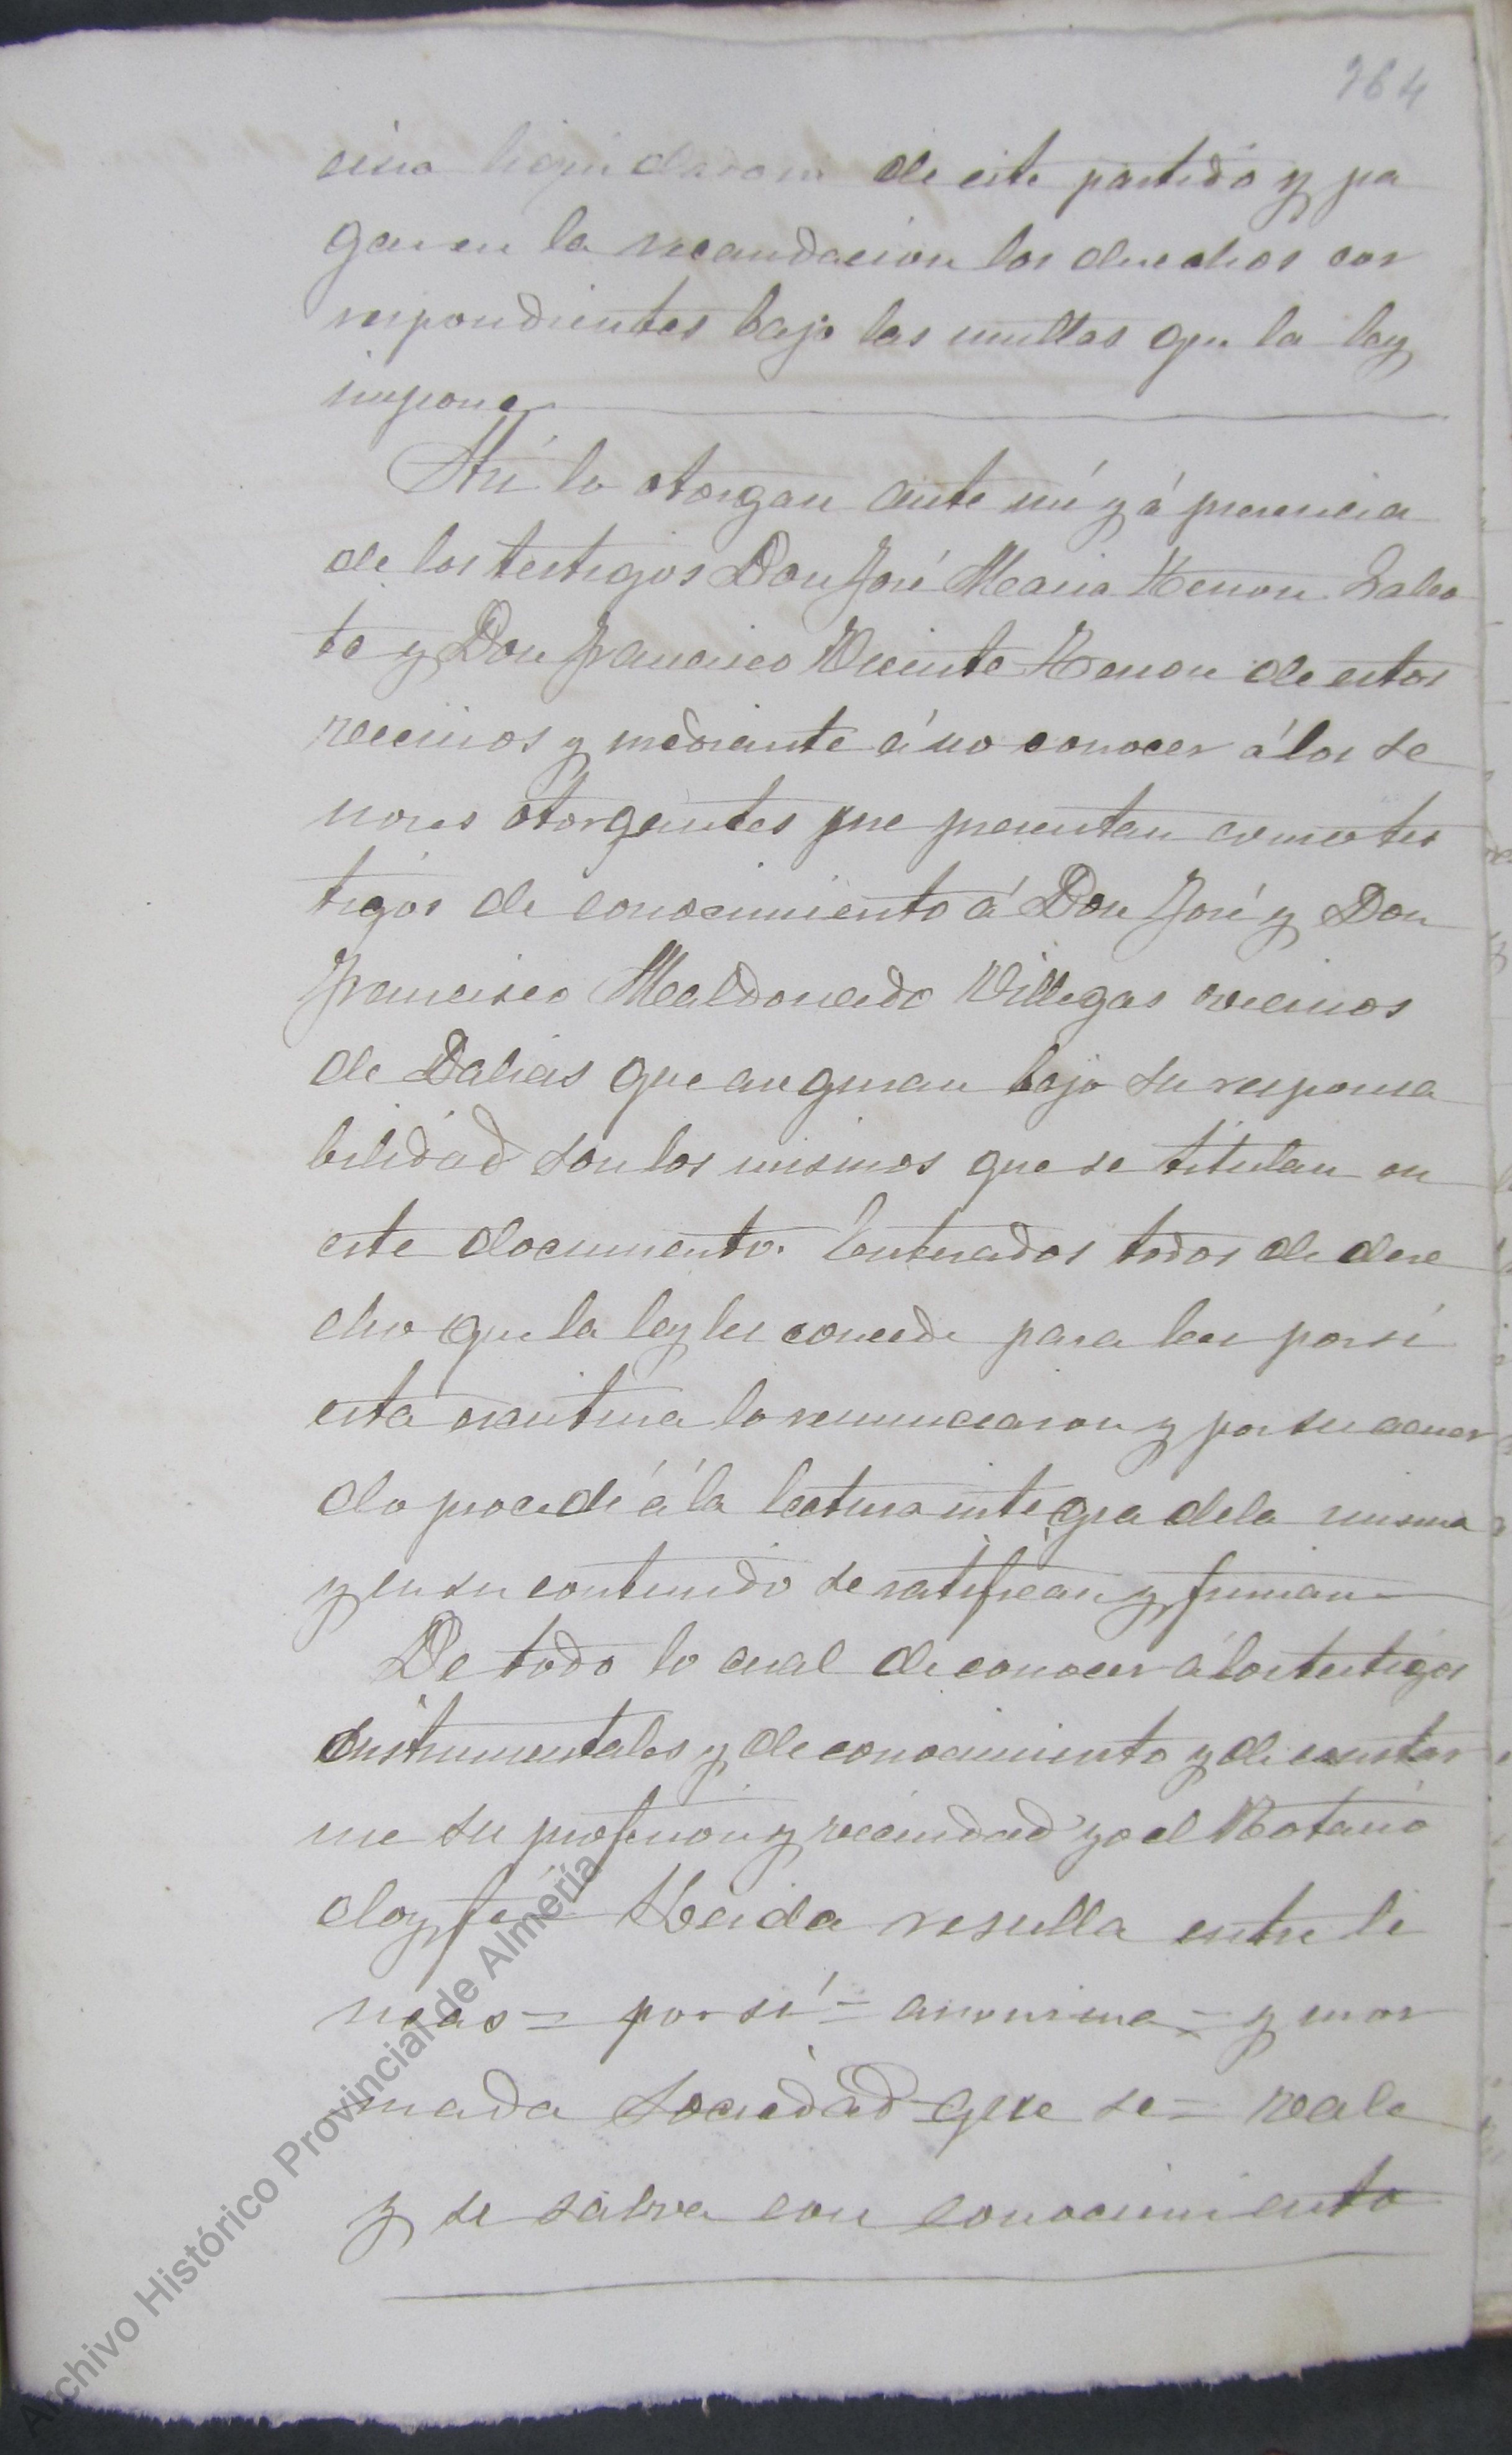 764
cina liquidadora de este partido y pa
gar en la recaudacion los derechos cor
respondientes bajo las multas que la ley
impone
Así lo otorgan ante mí y á presencia
de los testigos Don José Maria
te y Don Francisco Vicente de estos
vecinos y mediante á no conocer á los se
nores otorgantes que presentan como tes
tigos de conocimiento á Don José y Don
Francisco Maldonado Villegas vecinos
de Dalias que aseguran bajo su responsa
bilidad son los mismos que se titulan en
este documento. Enterados todos de dere
cho que la ley les concede para leer por sí
esta escritura lo renunciaron y por su acuer
do procedí á la lectura integra de la misma
y en su contenido se ratifican y firman
De todo lo cual de conocer á los testigos
instrumentales y de conocimiento y de constar
me su profesion y vecindad yo el Notario
doy fé= Leida resulta entre li
neas= por sí= anonima= y
mada Sociedad que se= vale
y se salva con conocimiento
Archivo Histórico Provincial de Almería